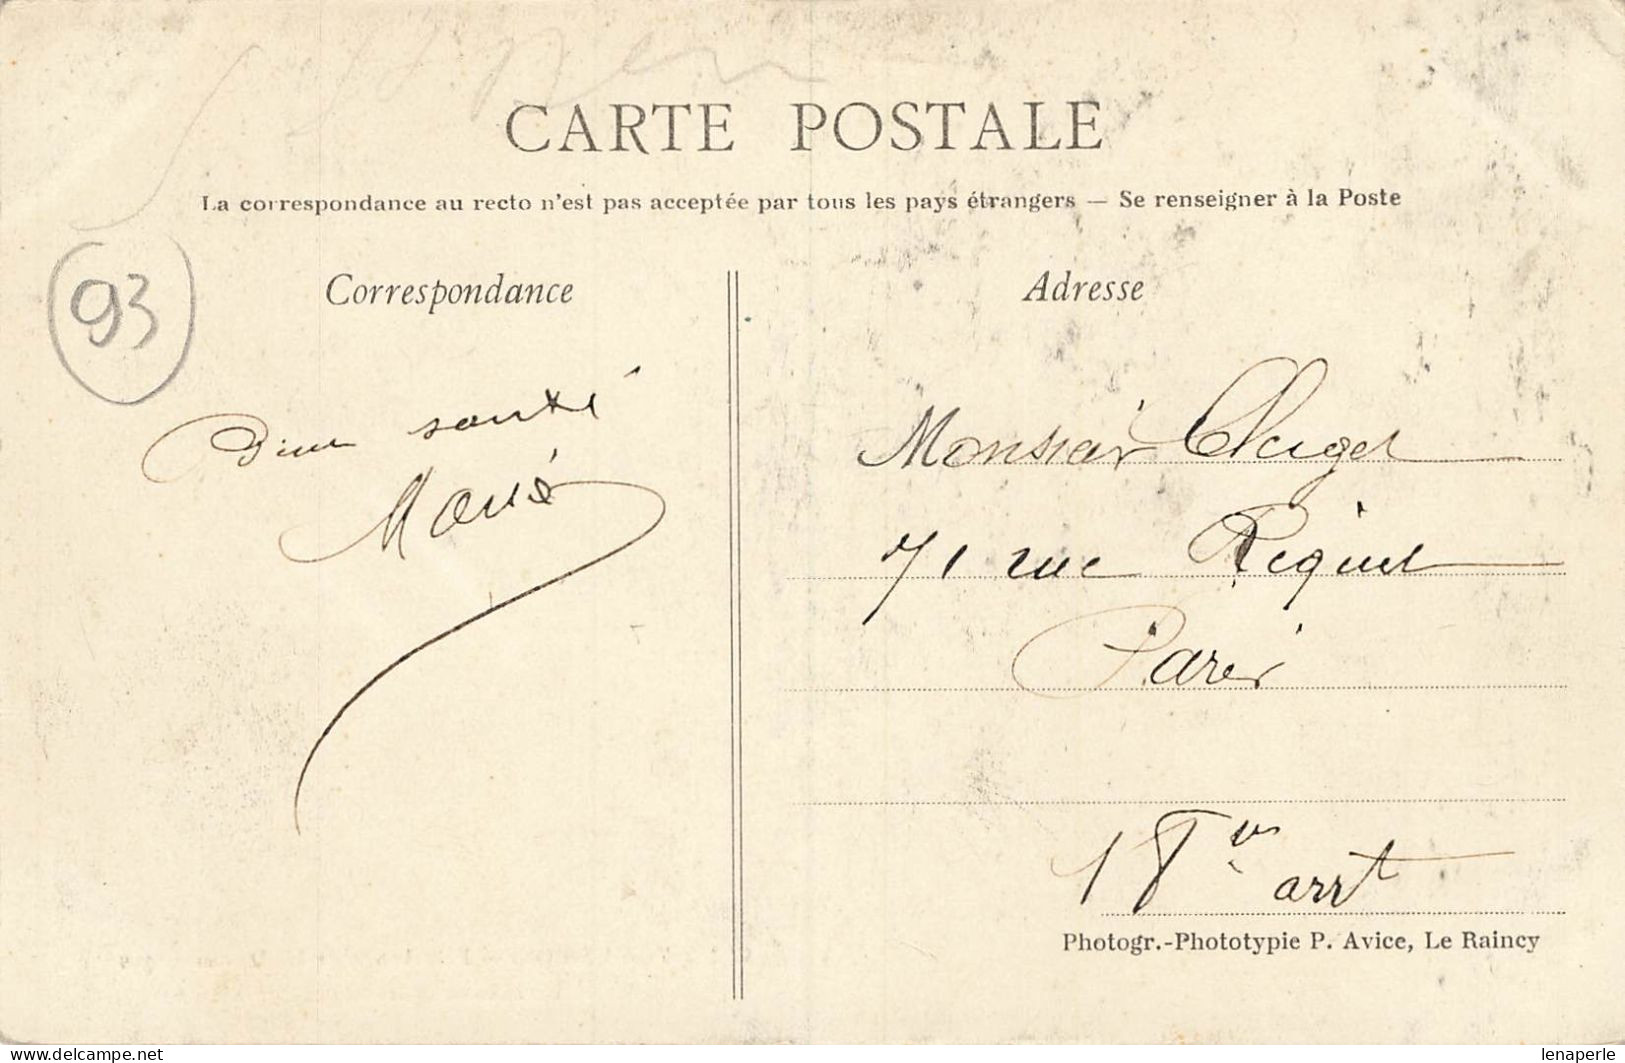 CARTE POSTALE
La correspondance au recto n'est pas acceptée par tous les pays étrangers — Se renseigner à la Poste
Correspondance
Adresse
93
santé
Marie
Monsieur
71 rue Riquet
Paris
18e arrt
Photogr.-Phototypie P. Avice, Le Raincy
lenaperle